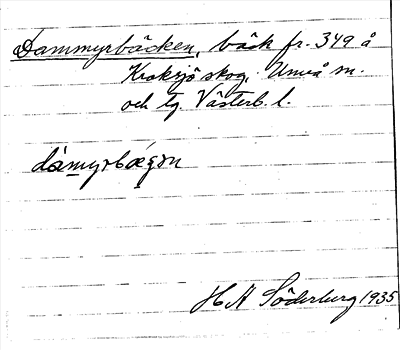 Dammyrbäcken, bäck fr. 349 å
Kroksjö skog. Umeå sn.
och tg. Västerb. l.
dàmyrbægən
H A Söderberg 1935